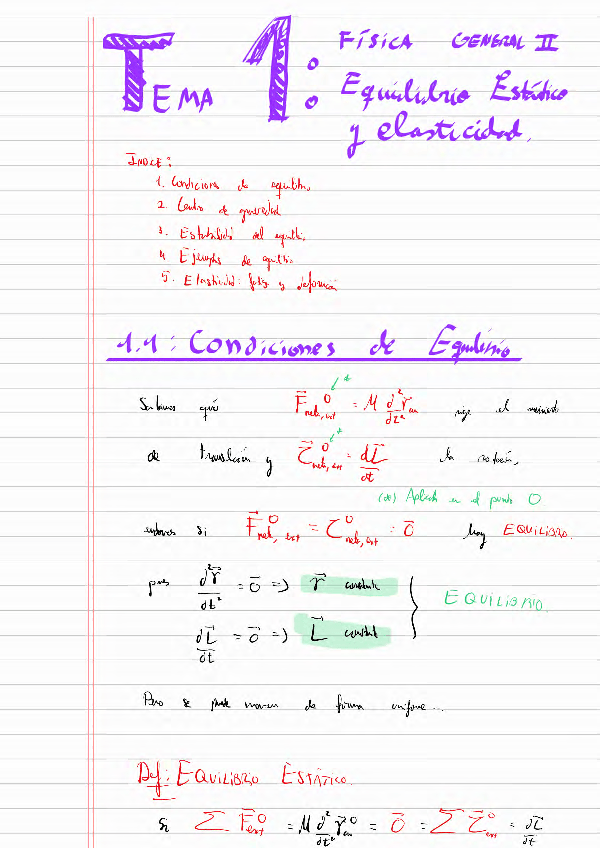 TEMA 1:
FÍSICA GENERAL II
Equilibrio Estático
y elasticidad.
ÍNDICE:
1. Condiciones de equilibrio
2. Centro de gravedad
3. Estabilidad del equilibrio
4. Ejemplos de equilibrio
5. Elasticidad: y deformación
1.1: Condiciones de Equilibrio
Sabemos que F⃗⁰ neta, ext = M d²r⃗cm/dt² rige el movimiento
de translación y τ⃗⁰ neta, ext = dL⃗/dt la rotación,
(*) Aplicada en el punto O
entonces si F⃗⁰ neta, ext = τ⃗⁰ neta, ext = 0⃗ hay EQUILIBRIO.
pues d²r⃗/dt² = 0⃗ => r⃗ constante
EQUILIBRIO
dL⃗/dt = 0⃗ => L⃗ constante
Pero se puede mover de forma uniforme...
Def: EQUILIBRIO ESTÁTICO.
Si Σ F⃗⁰ext = M d²/dt² r⃗⁰cm = 0⃗ = Σ τ⃗⁰ext = dL⃗/dt